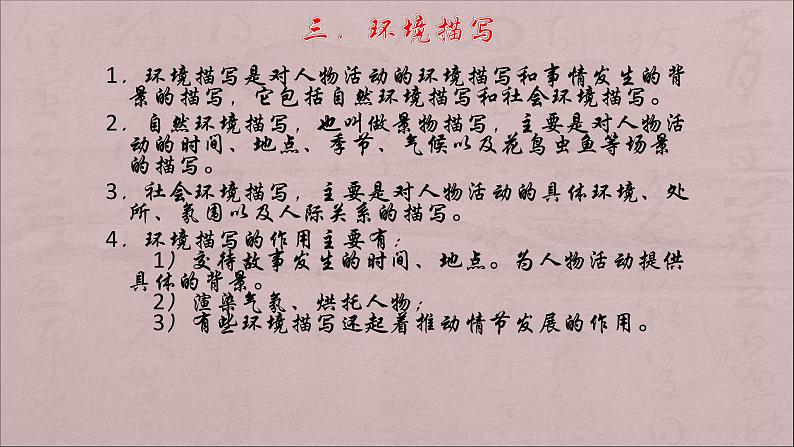 三．环境描写
1．环境描写是对人物活动的环境描写和事情发生的背
景的描写，它包括自然环境描写和社会环境描写。
2．自然环境描写，也叫做景物描写，主要是对人物活
动的时间、地点、季节、气候以及花鸟虫鱼等场景
的描写。
3．社会环境描写，主要是对人物活动的具体环境、处
所、氛围以及人际关系的描写。
4．环境描写的作用主要有：
1）交待故事发生的时间、地点。为人物活动提供
具体的背景。
2）渲染气氛、烘托人物；
3）有些环境描写还起着推动情节发展的作用。